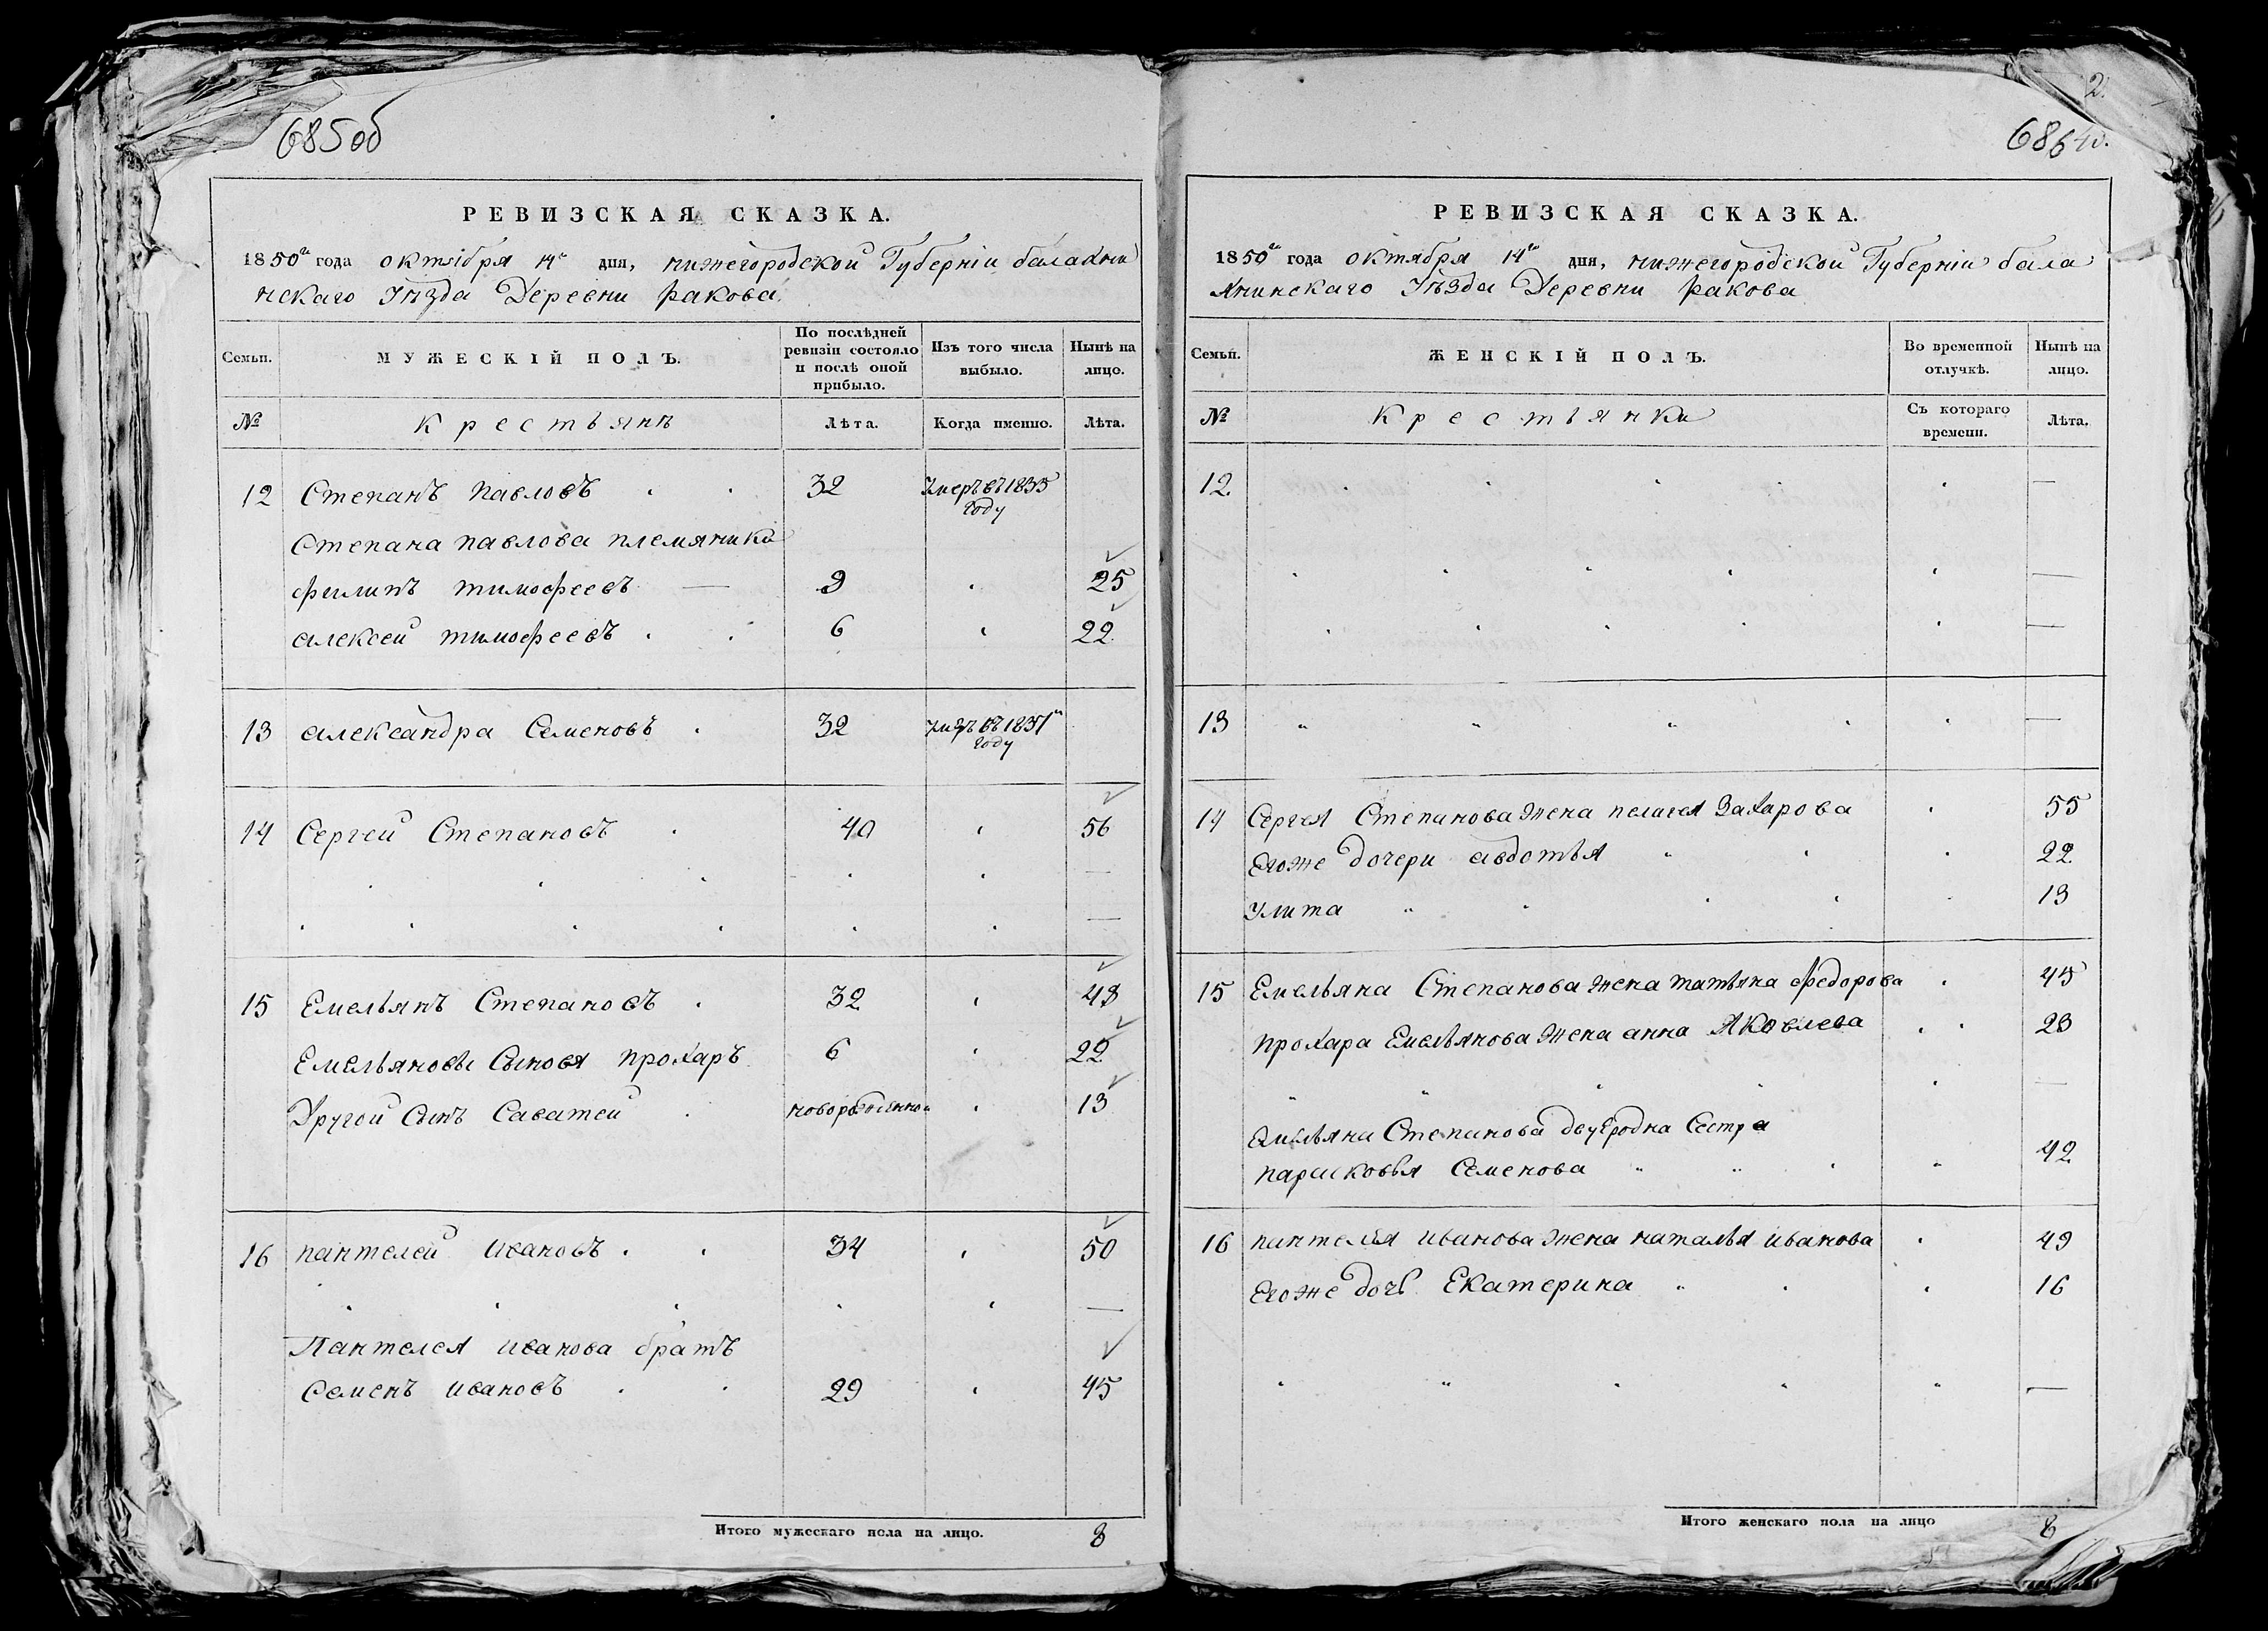 685об
РЕВИЗСКАЯ СКАЗКА.
1850го года октября 14го дня, нижегородской Губерніи балахни
нскаго Уѣзда Деревни ракова.
Семьи.
МУЖЕСКІЙ ПОЛЪ.
По послѣдней ревизіи состояло и послѣ оной прибыло.
Изъ того числа выбыло.
Нынѣ на лицо.
№ крестьянѣ Лѣта. Когда именно. Лѣта.
12 Степанъ павловъ 32 Умеръ въ 1835
году
Степана павлова племяники
филипъ тимофеевъ — 9 25
алексеи тимофеевъ 6 22
13 александра Семеновъ 32 умеръ въ 1837
году
14 Сергеи Степановъ 40 56
—
—
15 Емельянъ Степановъ 32 48
Емельяновы Сыновя прохаръ 6 22
Другои Сынъ Саватеи новорожденнои 13
16 пантелеи ивановъ 34 50
—
Пантелея иванова братъ
Семенъ ивановъ 29 45
Итого мужескаго пола на лицо. 8
2
686
РЕВИЗСКАЯ СКАЗКА.
1850го года октября 14го дня, нижегородской Губерніи бала
хнинскаго Уѣзда Деревни ракова
Семьи.
ЖЕНСКІЙ ПОЛЪ.
Во временной отлучкѣ.
Нынѣ на лицо.
№ крестьянки Съ котораго времени. Лѣта.
12. —
—
—
13 —
14 Сергея Степанова жена пелагея Захарова 55
Егоже дочери авдотья 22
Улита 13
15 Емельяна Степанова жена татьяна федорова 45
прохара Емельянова жена анна Яковлева 23
—
Емельяна Степанова двуродна Сестра
парасковья Семенова 42
16 пантелея иванова жена наталья иванова 49
Егоже дочь Екатерина 16
—
Итого женскаго пола на лицо 8